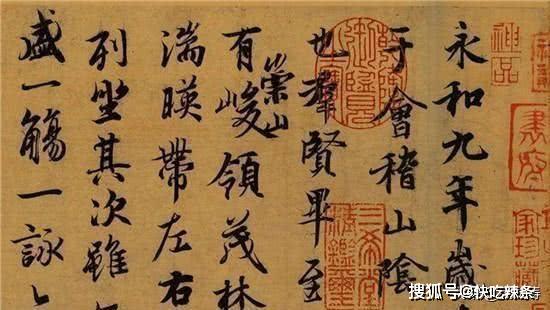 永和九年歲
于會稽山陰
也羣賢畢至
有崇山峻領茂林
湍暎帶左右
列坐其次雖
盛一觴一詠
神品
搜狐号@快吃辣条